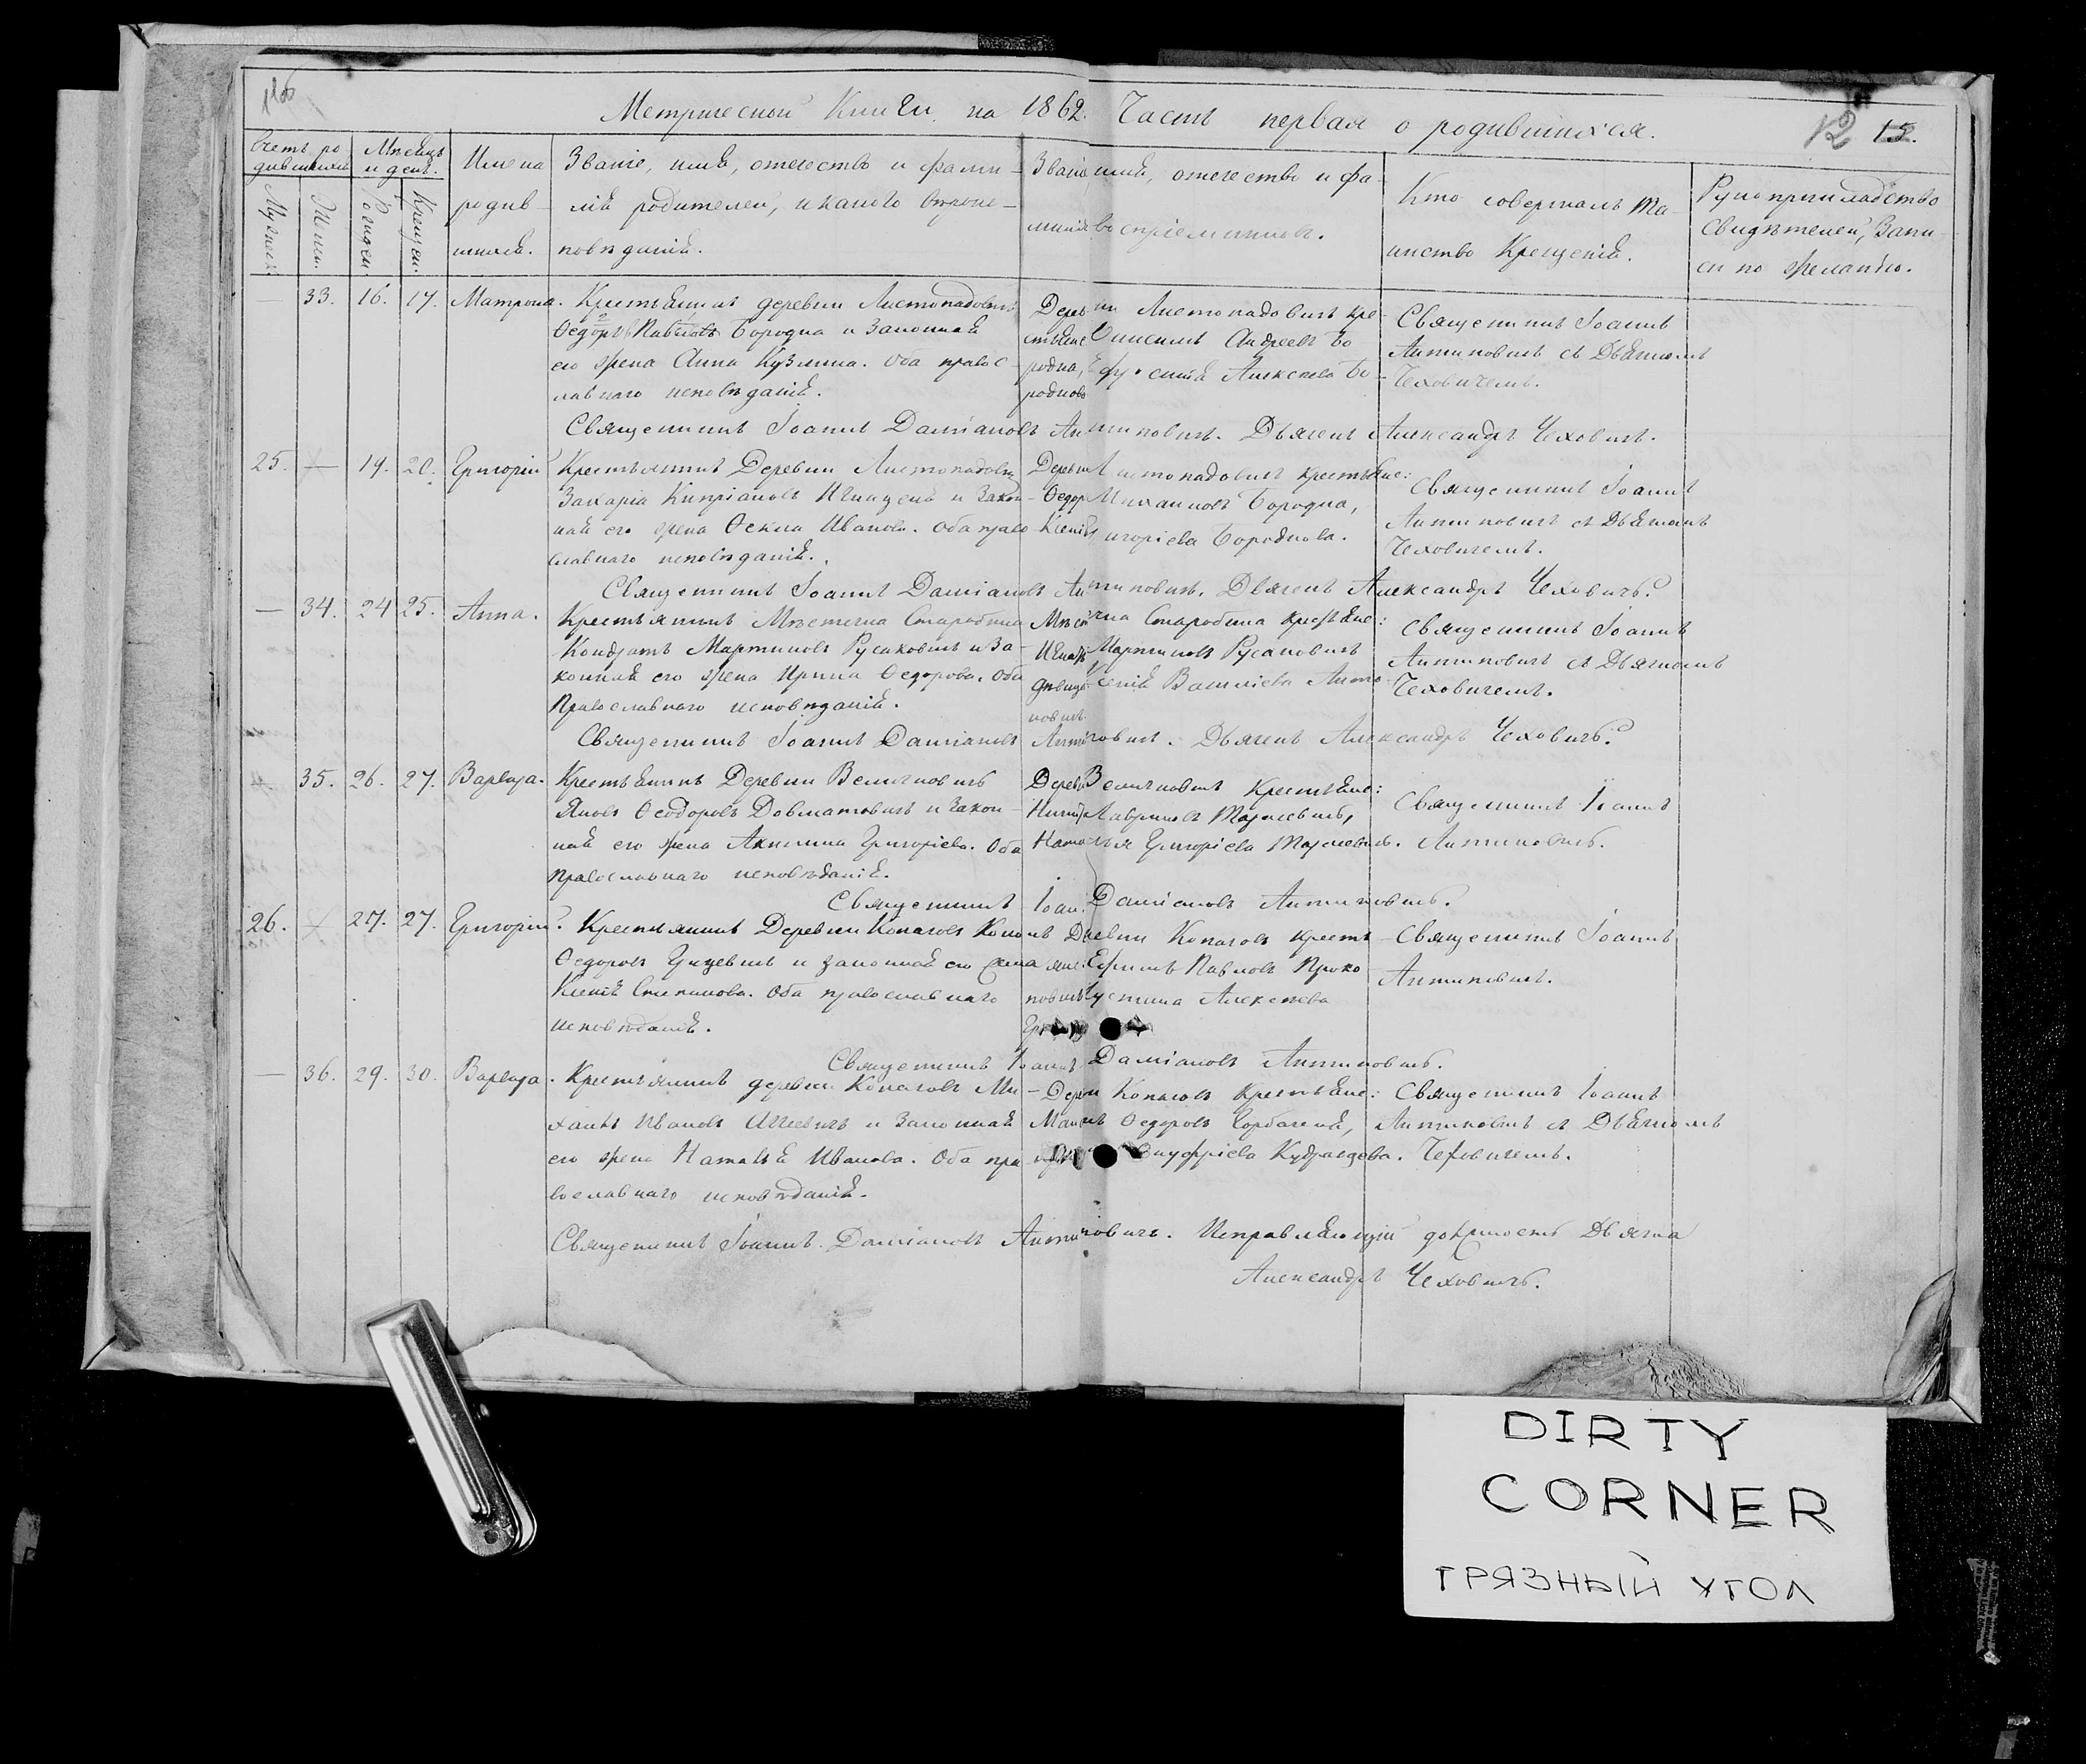 Метрической Книги на 1862. Часть первая о родившихся.
12 15.
Счетъ ро
дившихся
Мѣсяцъ
и день.
Мужеск.
Женск.
Рожден.
Крещен.
Имена
родив-
шихся.
Званіе, имя, отечество и фами-
лія родителей, и какого вѣроис-
повѣданія.
Званіе имя, отечество и фа-
милія воспріемниковъ.
Кто совершалъ та-
инство Крещенія.
Рукоприкладство
Свидѣтелей, запи-
си по желанію.
— 33. 16. 17. Матрона.
Крестьянинъ деревни Листопадовичъ
Ѳедоръ Павловъ Бородка и законная
его жена Анна Кузмина. Оба правос-
лавнаго исповѣданія.
Деревни Листопадовичъ кре-
стьяне Онисимъ Андреевъ Бо-
родка, Ефросинія Алексѣева Бо-
родкова
Священникъ Іоаннъ
Антиповичъ съ Дьячкомъ
Чеховичемъ.
Священникъ Іоаннъ Даміановъ Антиповичъ. Дьячекъ Александръ Чеховичъ.
25. — 19. 20. Григорій
Крестьянинъ Деревни Листопадович
Захарія Кипріановъ и закон-
ная его жена Ѳекла Иванова. Оба право-
славнаго исповѣданія.
Деревни Листопадовичъ крестьяне:
Ѳедор Михаиловъ Бородка,
Ксенія Григоріева Бородкова.
Священникъ Іоаннъ
Антиповичъ съ Дьячкомъ
Чеховичемъ.
Священникъ Іоаннъ Даміановъ Антиповичъ. Дьячекъ Александръ Чеховичъ.
— 34. 24 25. Анна.
Крестьянинъ Мѣстечка Старобина
Кондратъ Мартиновъ Русаковичъ и за-
конная его жена Ирина Ѳедорова. Оба
Православнаго исповѣданія.
Мѣстечка Старобина крестьяне:
Игнатъ Мартиновъ Русаковичъ
дѣвица Ксенія Василіева Анти-
повичъ.
Священникъ Іоаннъ
Антиповичъ съ Дьячкомъ
Чеховичемъ.
Священникъ Іоаннъ Даміановъ Антиповичъ. Дьячекъ Александръ Чеховичъ.
35. 26. 27. Варвара.
Крестьянинъ Деревни Величковичъ
Яковъ Ѳеодоровъ Довматовичъ и закон-
ная его жена Акилина Григоріева. Оба
Православнаго исповѣданія.
Дерев Величковичъ Крестьяне:
Лавриновъ
Наталья Григоріева
Священникъ Іоаннъ
Антиповичъ.
Священникъ Іоан. Даміановъ Антиповичъ.
26. 27. 27. Григорій.
Крестьянинъ Деревни Копацевъ
Ѳедоровъ Грицевичъ и законная его жена
Ксенія Степанова. Оба православнаго
исповѣданія.
Деревни Копацевъ кресть-
яне: Ефимъ Павловъ Проко-
повичъ Устина Алексѣева
Священникъ Іоаннъ
Антиповичъ.
Священникъ Іоаннъ Даміановъ Антиповичъ.
— 36. 29. 30. Варвара.
Крестьянинъ деревни Копацевъ Ми-
хаилъ Ивановъ и законная
его жена Наталья Иванова. Оба пра-
вославнаго исповѣданія.
Деревни Копацевъ Крестьяне:
Ѳедоровъ Горбачекъ,
Онуфріева Кудравцева.
Священникъ Іоаннъ
Антиповичъ съ Дьячкомъ
Чеховичемъ.
Священникъ Іоаннъ Даміановъ Антиповичъ. Исправляющій должность Дьячка
Александръ Чеховичъ.
DIRTY
CORNER
ГРЯЗНЫЙ УГОЛ